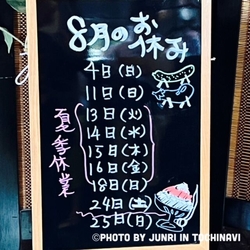 8月のお休み
4日(日)
11日(日)
13日(火)
14日(水)
15日(木)
16日(金)
18日(日)
24日(土)
25日(日)
夏季休業
©PHOTO BY JUNRI IN TOCHINAVI